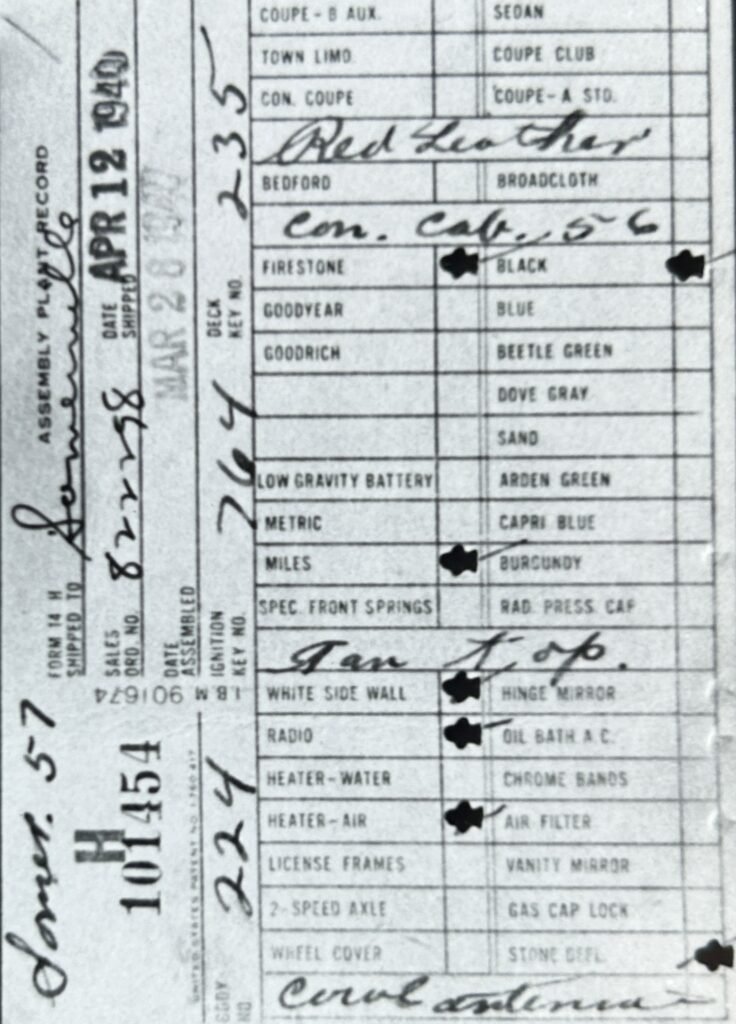 ASSEMBLY PLANT RECORD
FORM 14 H
SHIPPED TO Somerville
SALES ORD. NO. 822298
DATE SHIPPED APR 12 1940
DATE ASSEMBLED MAR 28 1940
IGNITION KEY NO. 764
DECK KEY NO. 235
Somer. 57
H
101454
I.B.M 901674
UNITED STATES PATENT NO. 1,780,417
BODY NO 224
COUPE-B AUX. SEDAN
TOWN LIMO. COUPE CLUB
CON. COUPE COUPE-A STD.
Red Leather
BEDFORD BROADCLOTH
Con. Cab. 56
FIRESTONE BLACK
GOODYEAR BLUE
GOODRICH BEETLE GREEN
DOVE GRAY
SAND
LOW GRAVITY BATTERY ARDEN GREEN
METRIC CAPRI BLUE
MILES BURGUNDY
SPEC. FRONT SPRINGS RAD. PRESS. CAP
Tan top.
WHITE SIDE WALL HINGE MIRROR
RADIO OIL BATH A.C.
HEATER-WATER CHROME BANDS
HEATER-AIR AIR FILTER
LICENSE FRAMES VANITY MIRROR
2-SPEED AXLE GAS CAP LOCK
WHEEL COVER STONE DEFL.
Cowl antenna